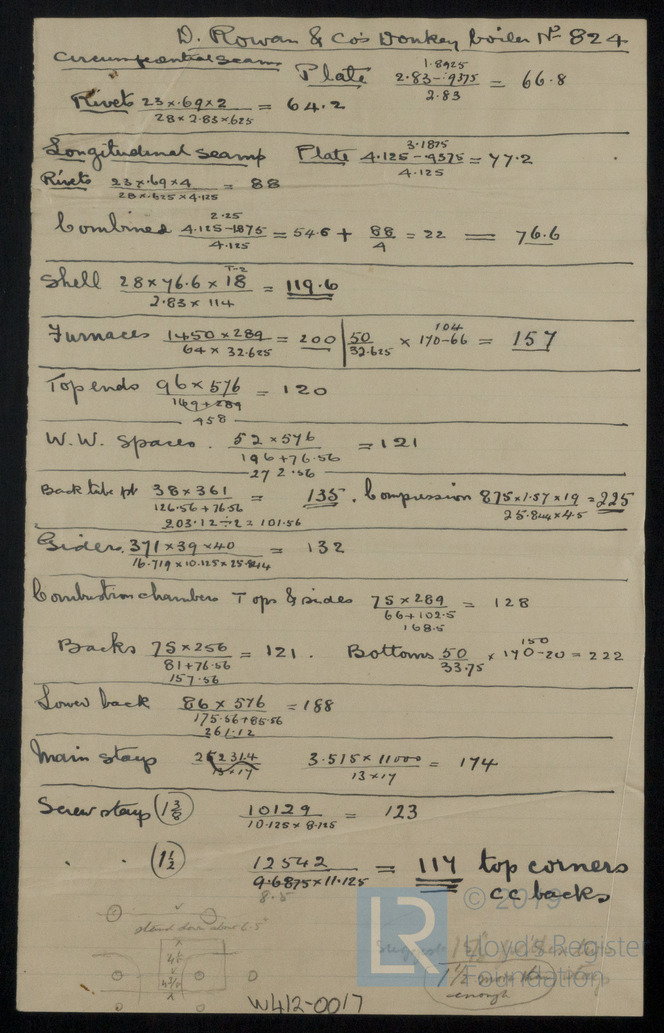 D. Rowan & Co's Donkey boiler No 824
Circumferential seams Plate 1.8925
2.83-.9375 / 2.83 = 66.8
Rivets 23 x .69 x 2 / 28 x 2.83 x .625 = 64.2
Longitudinal seams Plate 3.1875
4.125-.9375 / 4.125 = 77.2
Rivets 23 x .69 x 4 / 28 x .625 x 4.125 = 88
Combined 2.25
4.125-1.875 / 4.125 = 54.6 + 88/4 = 22 = 76.6
Shell T-2
28 x 76.6 x 18 / 2.83 x 114 = 119.6
Furnaces 1450 x 289 / 64 x 32.625 = 200 | 50 / 32.625 x 104
170-66 = 157
Top ends 96 x 576 / 169+289 = 120
458
W.W. Spaces. 52 x 576 / 196+76.56 = 121
272.56
Back tube pl 38 x 361 / 126.56+76.56 = 135. Compression 875 x 1.57 x 19 / 25.844 x 4.5 = 225
203.12 ÷ 2 = 101.56
Girders. 371 x 39 x 40 / 16.719 x 10.125 x 25.844 = 132
Combustion chambers Tops & sides 75 x 289 / 66+102.5 = 128
168.5
Backs 75 x 256 / 81+76.56 = 121. Bottoms 50 / 33.75 x 150
170-20 = 222
157.56
Lower back 86 x 576 / 175.56+85.56 = 188
261.12
Main stays 13 x 17 3.515 x 11000 / 13 x 17 = 174
Screw stays 1 3/8 10129 / 10.125 x 8.125 = 123
1 1/2 12542 / 9.6875 x 11.125 = 117 top corners
8.5 cc backs
© 2019
LR Lloyd's Register
Foundation
1 1/2
enough
W412-0017